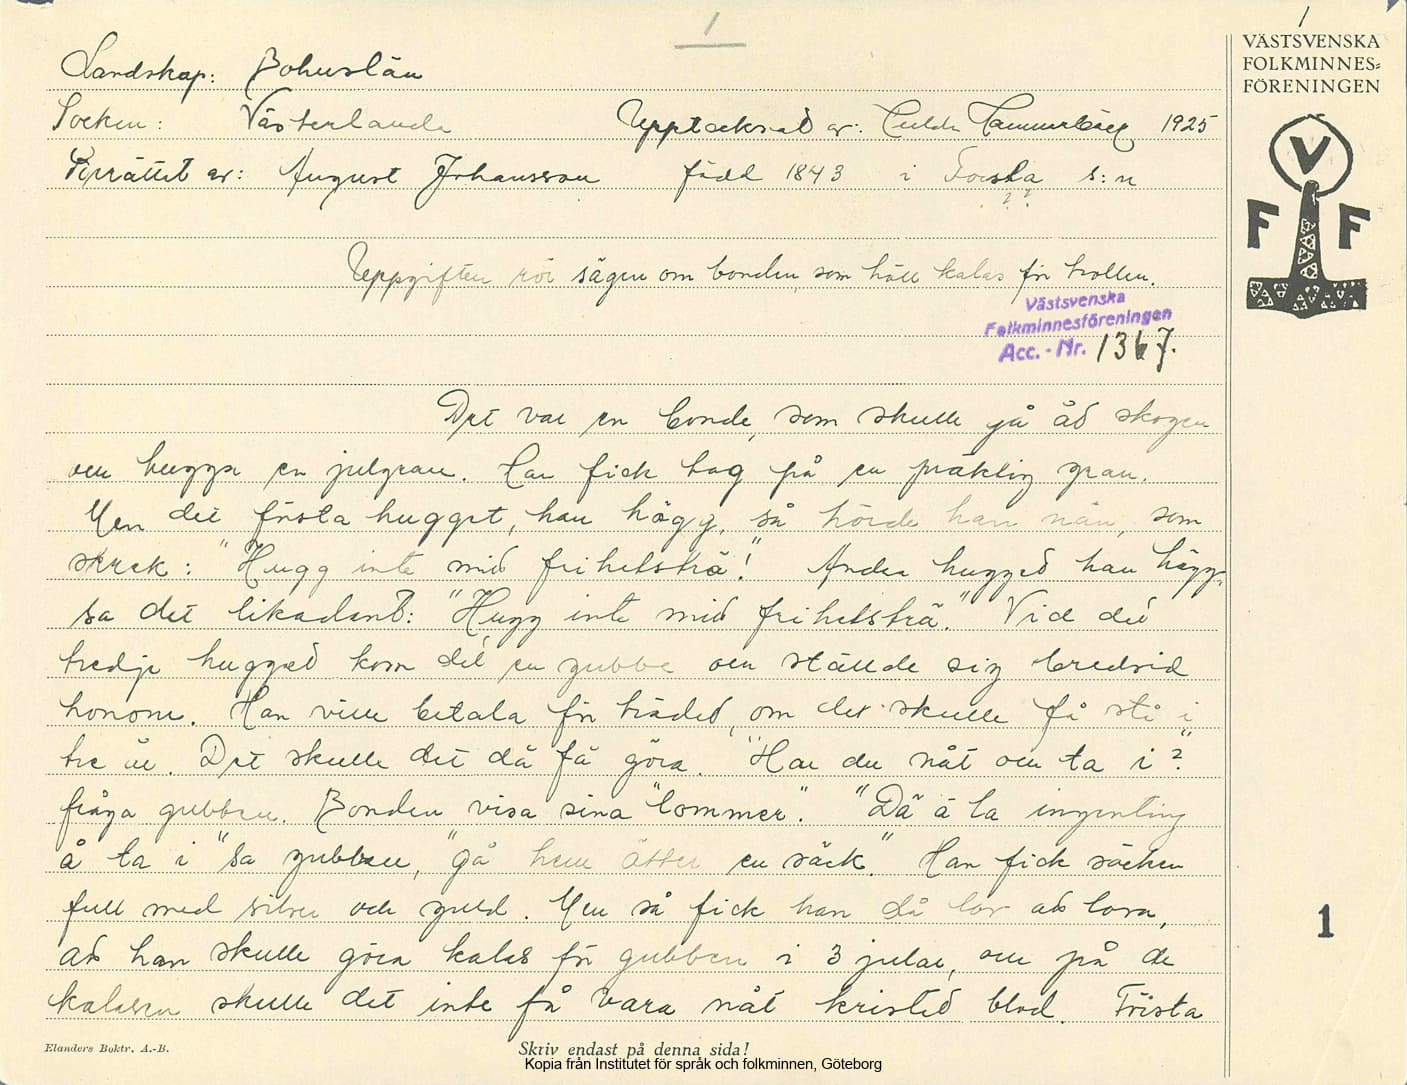 1
1
VÄSTSVENSKA
FOLKMINNES=
FÖRENINGEN
V
F F
Landskap: Bohuslän
Socken: Västerlanda Upptecknat av: Hulda Hammarbäck 1925
Berättat av: August Johansson född 1843 i Torsla s:n
? ?
Uppgiften rör sägen om bonden, som höll kalas för trollen.
Västsvenska
Folkminnesföreningen
Acc. - Nr. 1367.
Det var en bonde, som skulle gå åd skogen
och hugga en julgran. Han fick tag på en präktig gran.
Men det första hugget, han högg, så hörde han nån, som
skrek: "Hugg inte mid frihetsträ!" Andra hugged han högg,
sa det likadant: "Hugg inte mid frihetsträ." Vid det
tredje hugged kom det en gubbe och ställde sig bredvid
honom. Han ville betala för träded, om det skulle få stå i
tre år. Det skulle det då få göra. "Har du nåt och ta i"?
fråga gubben. Bonden visa sina "lommer". "Dä ä la ingenting
å ta i" sa gubben, "gå hem ätter en säck." Han fick säcken
full med silver och guld. Men så fick han då lov ad lova,
ad han skulle göra kalas för gubben i 3 jular, och på de
kalasen skulle det inte få vara nåt kristed blod. Första
1
Elanders Boktr. A.-B.
Skriv endast på denna sida!
Kopia från Institutet för språk och folkminnen, Göteborg